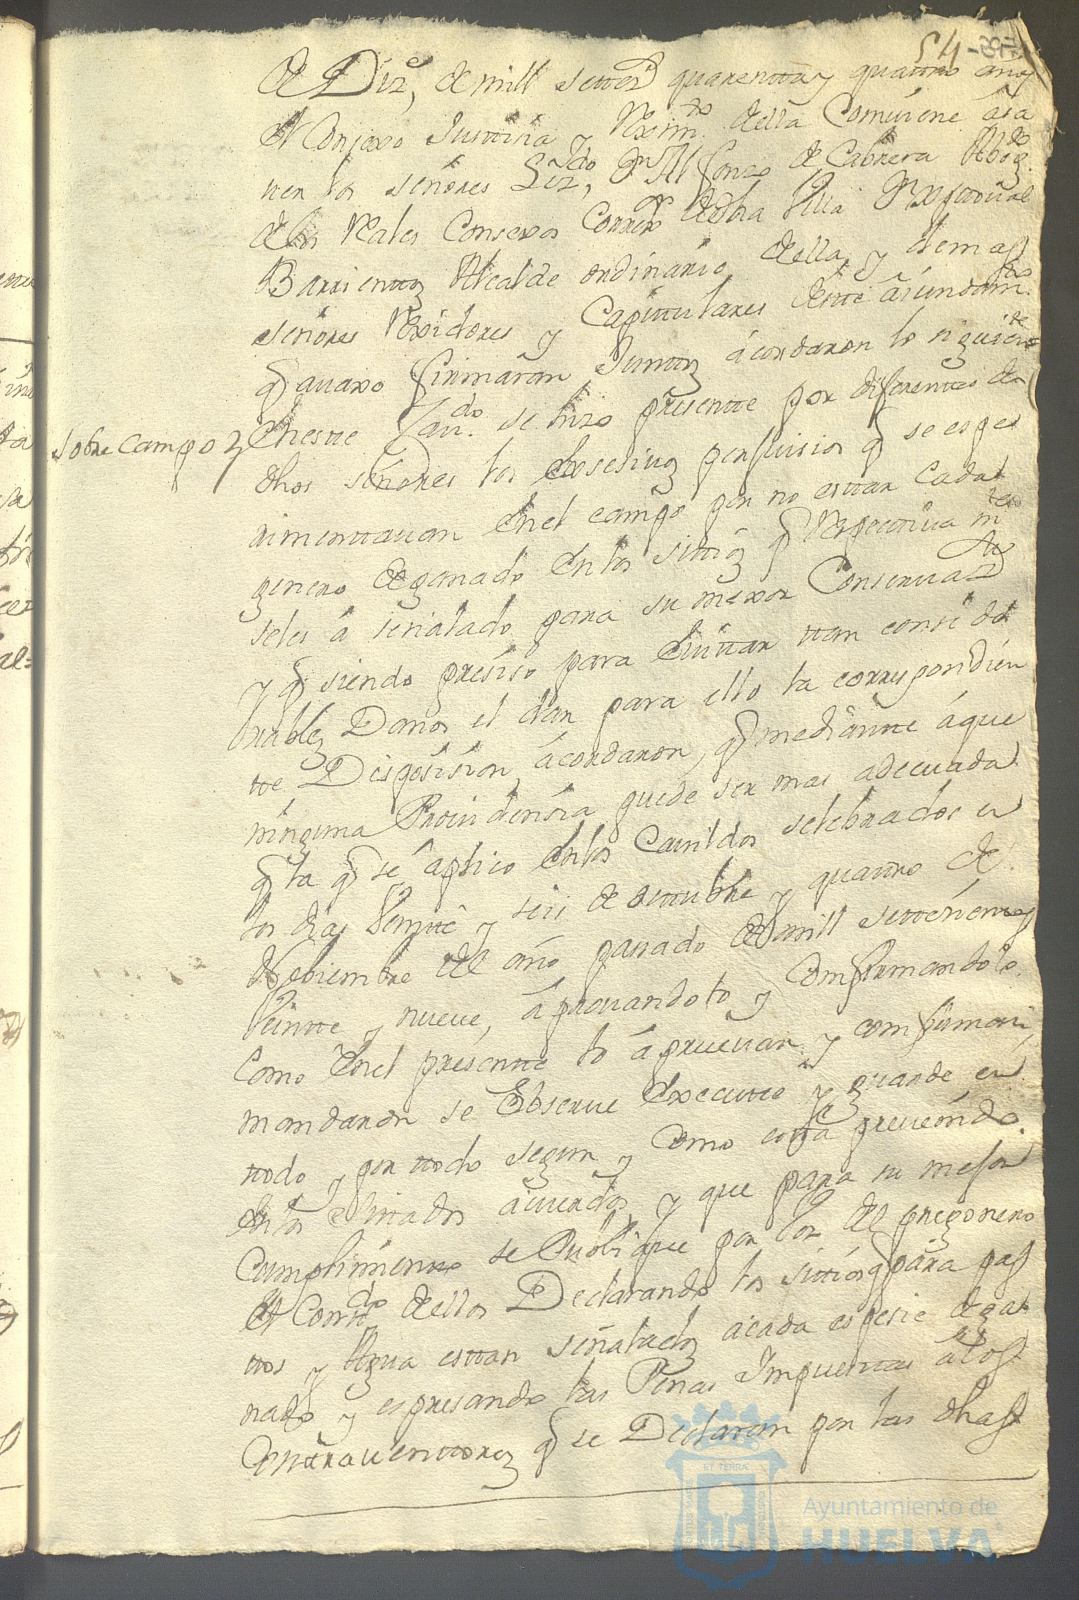 54
de Diz.e, de mill setez.s quarentta y quattro años
el Conzexo Justticia y Rexim.to della Comviene a sa
uer los señores Liz.do Dn Alfonso de Cabrera Abog.do
de los Reales Consexos Correx.or de dha Villa Dn Pasqual
Barrienttos Alcalde ordinario della, y demas
señores Rexidores y Capittulares deste aiunttam.to
q auaxo firmaran Junttos acordaron lo siguien.te
sobre campos
En este Cau.do se hizo presentte por diferenttes de
dhos señores los Exsesivos perjuisios q se espe
rimenttauan en el campo por no esttar cada
genero de ganado en los sittios q Respectiva m.te
seles a señalado para su mexor Conserua.on
y q siendo presiso para Euittar ttan conside
rables Daños el dar para ello la correspondien
tte Disposision, acordaron, q mediantte a que
ninguna Prouidensia puede ser mas adecuada
q la q se aplico en los Cauildos selebrados en
los dias Veintte y seis de octtubre y quattro de
Nobiembre del año pasado de mill settesienttos
Veintte y nueve, aprouandolo y Confirmandolo
Como en el presentte lo aprueuan y confirman,
mandaron se Observe Executte y guarde en
ttodo y por ttodo segun y Como estta preuenido
en los Cittados acuerdos, y que para su mejor
Cumplimientto se Publique por Voz de pregonero
el Contt.do dellos Declarando los sittios q para pas
ttos y Agua esttan señalados a cada espesie de ga
nado y espresando las Penas Impuesttas a los
Conttrauenttores q se Declaran por las dhas
Ayuntamiento de
HUELVA